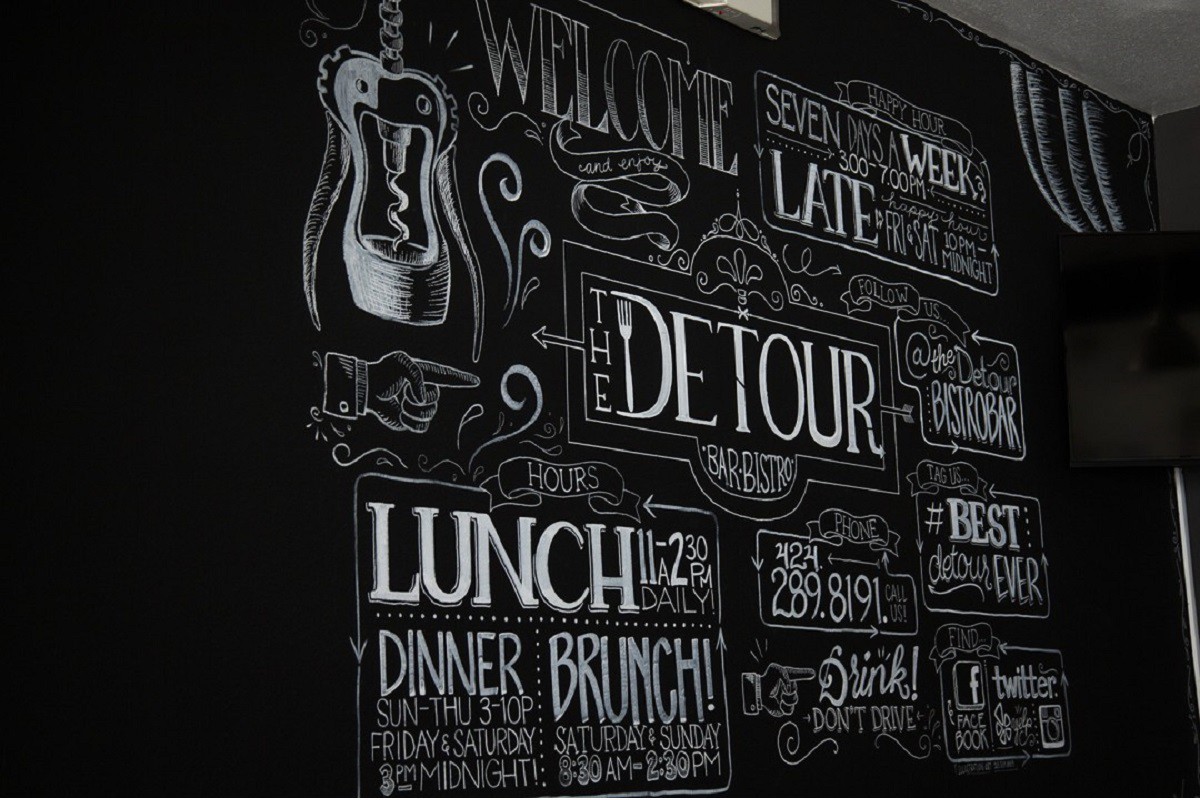 WELCOME
and enjoy
HAPPY HOUR
SEVEN DAYS A WEEK
3:00-7:00PM
LATE happy hour
FRI & SAT 10PM-
MIDNIGHT
FOLLOW US...
@the Detour
BISTROBAR
THE DETOUR
BAR·BISTRO
TAG US...
# BEST
detour EVER
HOURS
LUNCH 11A-2:30PM
DAILY!
DINNER
SUN-THU 3-10P
FRIDAY & SATURDAY
3PM MIDNIGHT!
BRUNCH!
SATURDAY & SUNDAY
8:30 AM-2:30PM
PHONE
424.
289.8191.
CALL US!!
Drink!
DON'T DRIVE
FIND...
f
twitter
FACE
BOOK
yelp